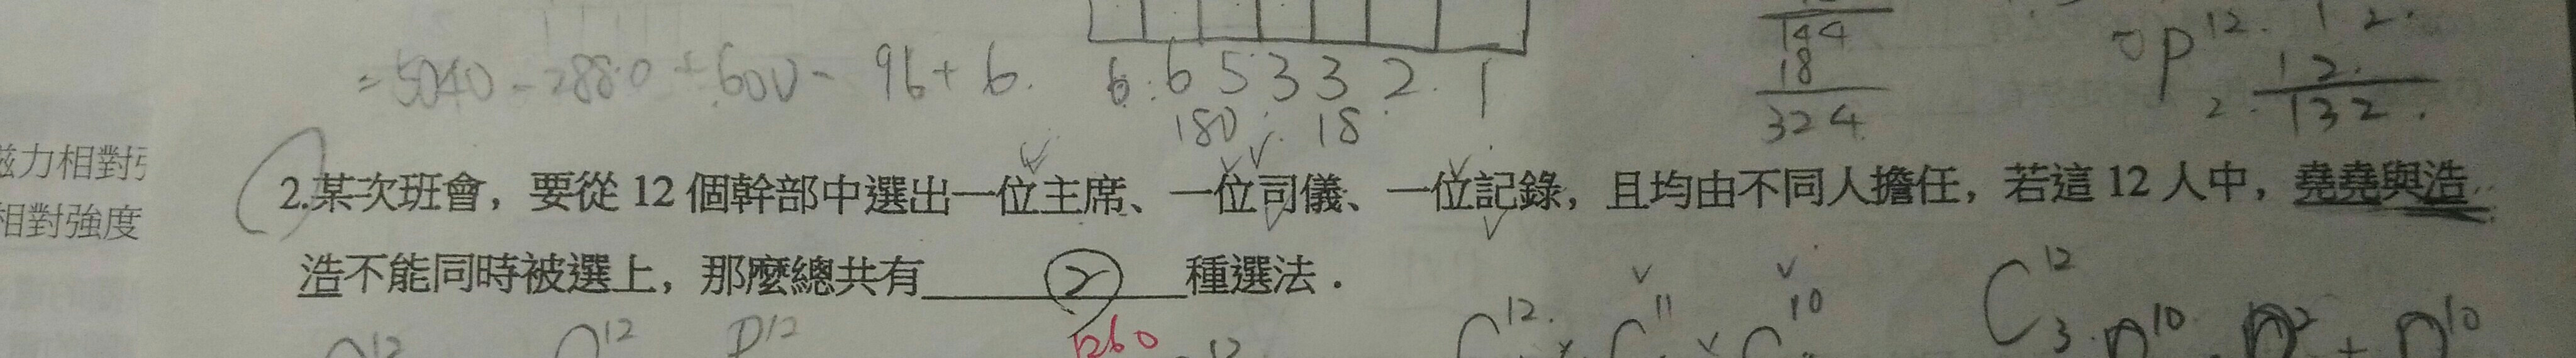 144
18
324
P 12 2
12.
12.
132.
= 5040 - 2880 + 600 - 96 + 6.
6. 6 5 3 3 2. 1
180. 18
磁力相對強
相對強度
2.某次班會，要從 12 個幹部中選出一位主席、一位司儀、一位記錄，且均由不同人擔任，若這 12 人中，堯堯與浩
浩不能同時被選上，那麼總共有 ② 種選法．
1260